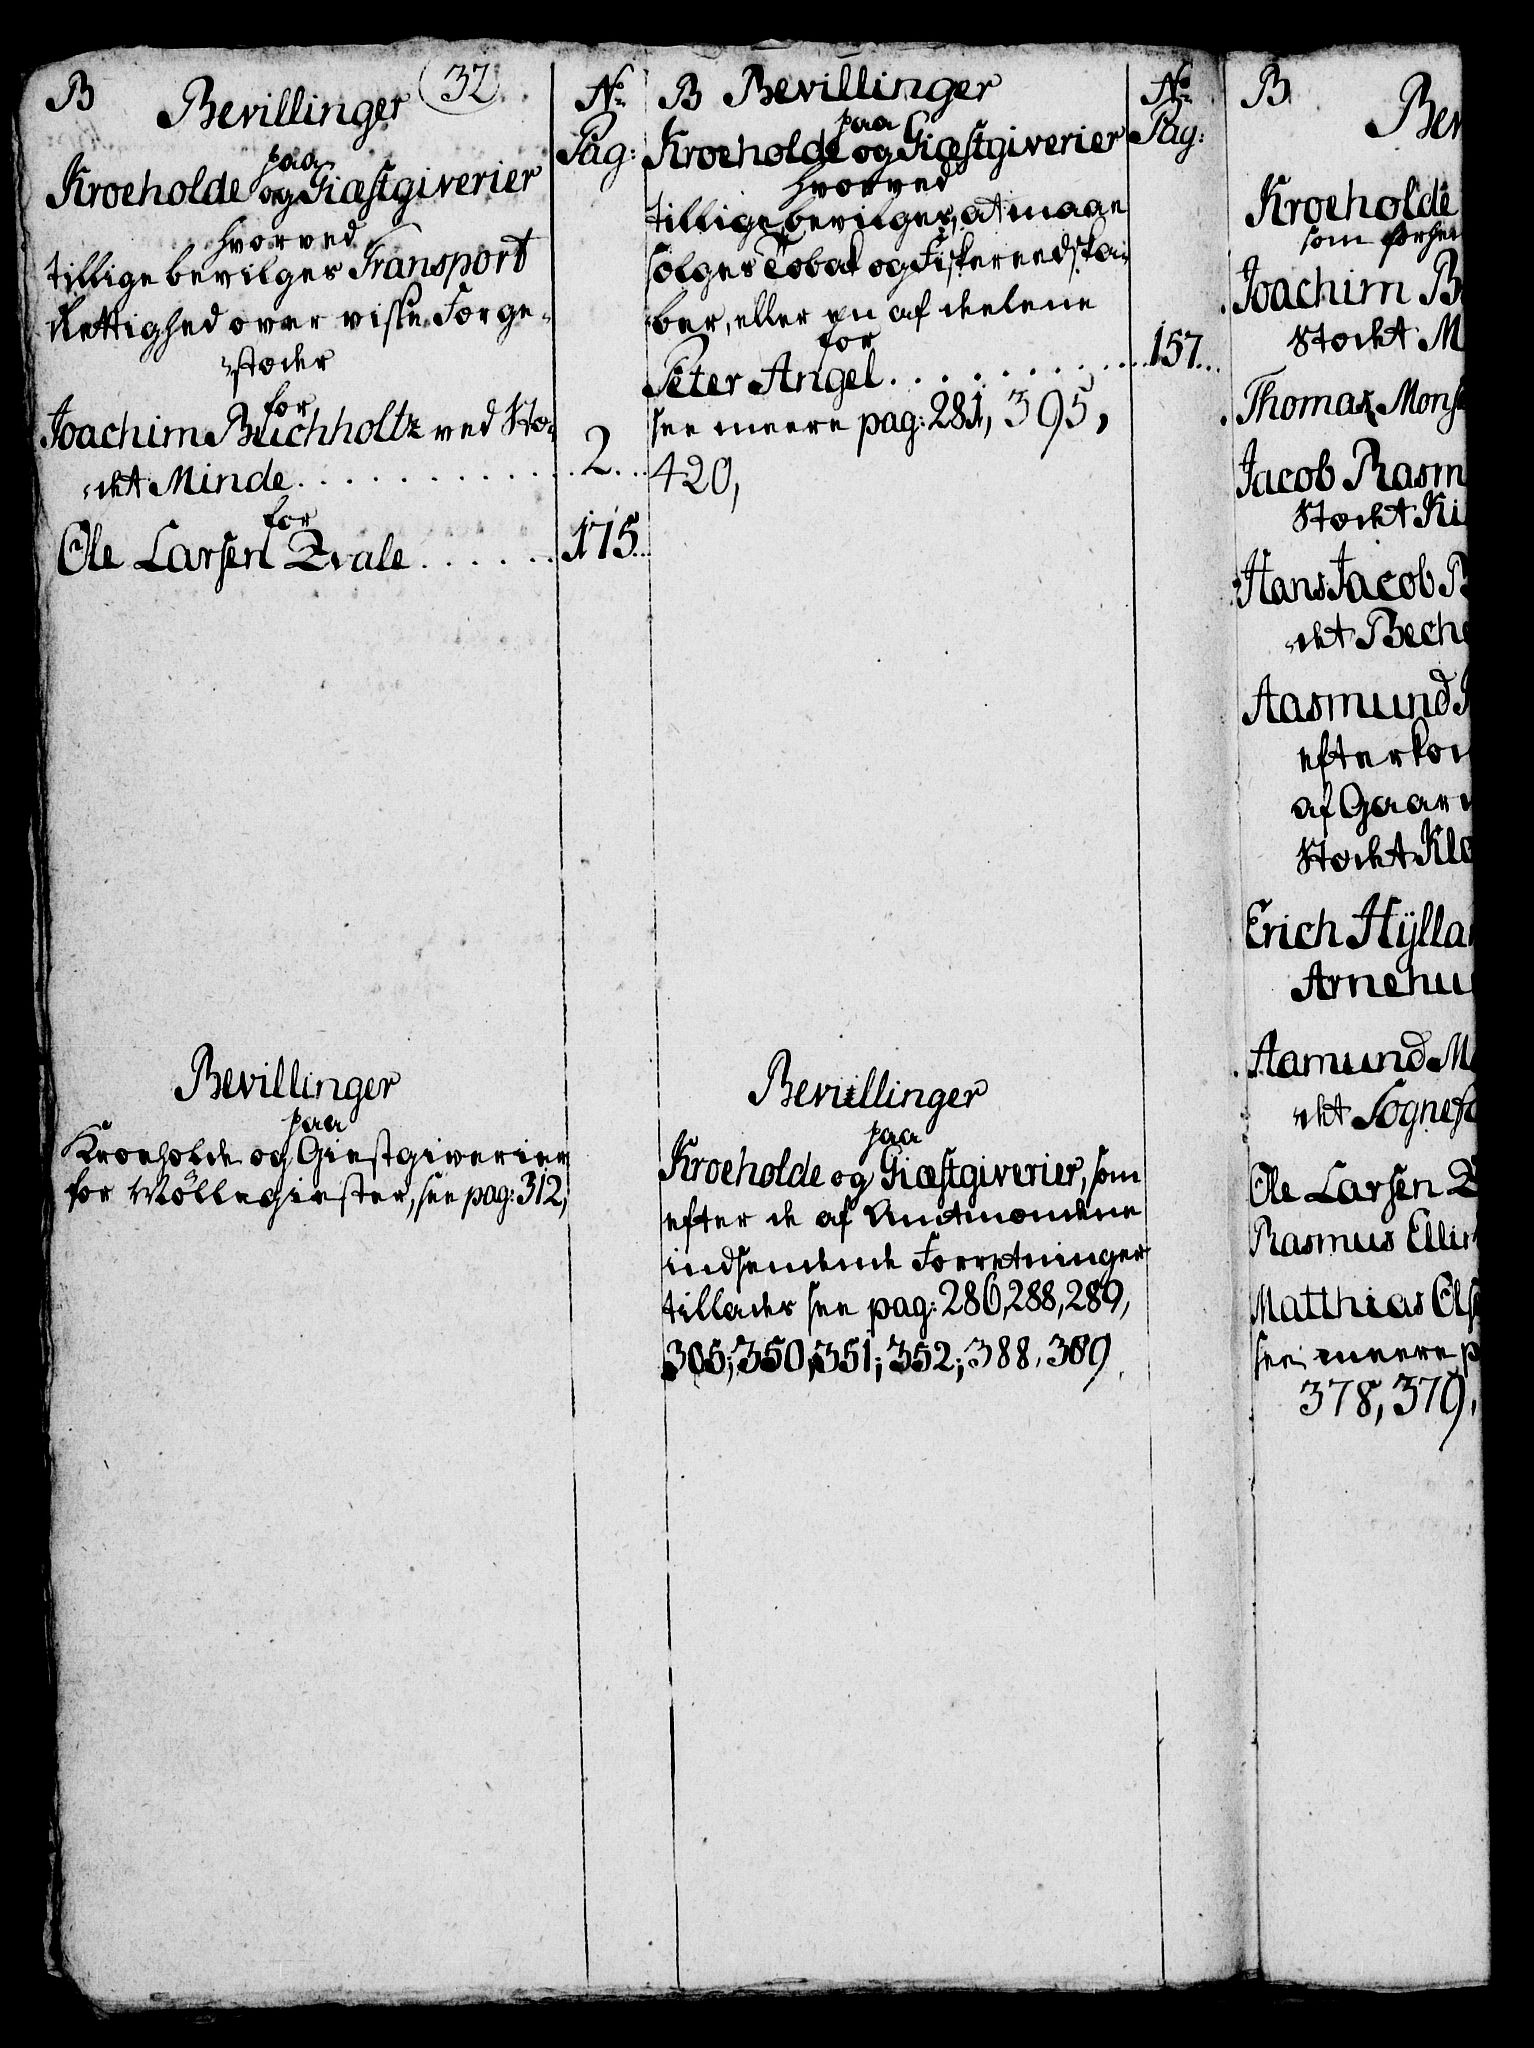 B
Bevillinger
32
No
Pag:
paa
Kroeholde og Giæstgiverier
hvorved
tillige bevilges Transport
Rettighed over visse Færge-
stæder
for
Joachim Buchholtz ved Stæ-
det Minde . . . . . . . . . . . 2 . . .
for
Ole Larsen Qvale . . . . . . 175 . .
Bevillinger
paa
Kroeholde og Giestgiverier
for Møllegiester, see pag: 312,
B Bevillinger
No
Pag:
paa
Kroeholde og Giæstgiverier
hvorved
tillige bevilges, at maae
sælges Tobak og Fiskereedska-
ber, eller en af deelene
for
Peter Angel . . . . . . . . . . 157 . . .
see meere pag: 281, 395,
420,
Bevillinger
paa
Kroeholde og Giæstgiverier, som
efter de af Amtmændene
indsendende Forretninger
tillades see pag: 286, 288, 289,
305; 350, 351; 352; 388, 389
B
Bev
Kroeholde
som
Joachim B
Stædet M
Thomas Mons
Jacob Rasm
Stædet Ki
Hans Jacob B
det Beche
Aasmund
efterkom
af Gaar
Stædet Klo
Erich Hÿlla
Arnehu
Aamund M
det Sognef
Ole Larsen Q
Rasmus Ellin
Matthias Ols
see meere p
378, 379,